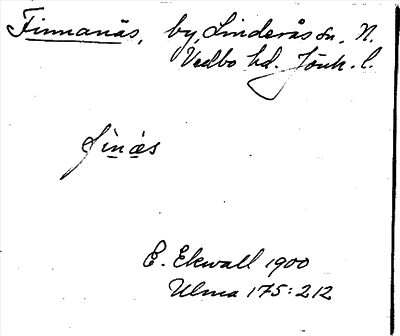 Finnanäs, by, Linderås sn. N.
Vedbo hd. Jönk. l.
finæs
E. Ekwall 1900
Ulma 175:212